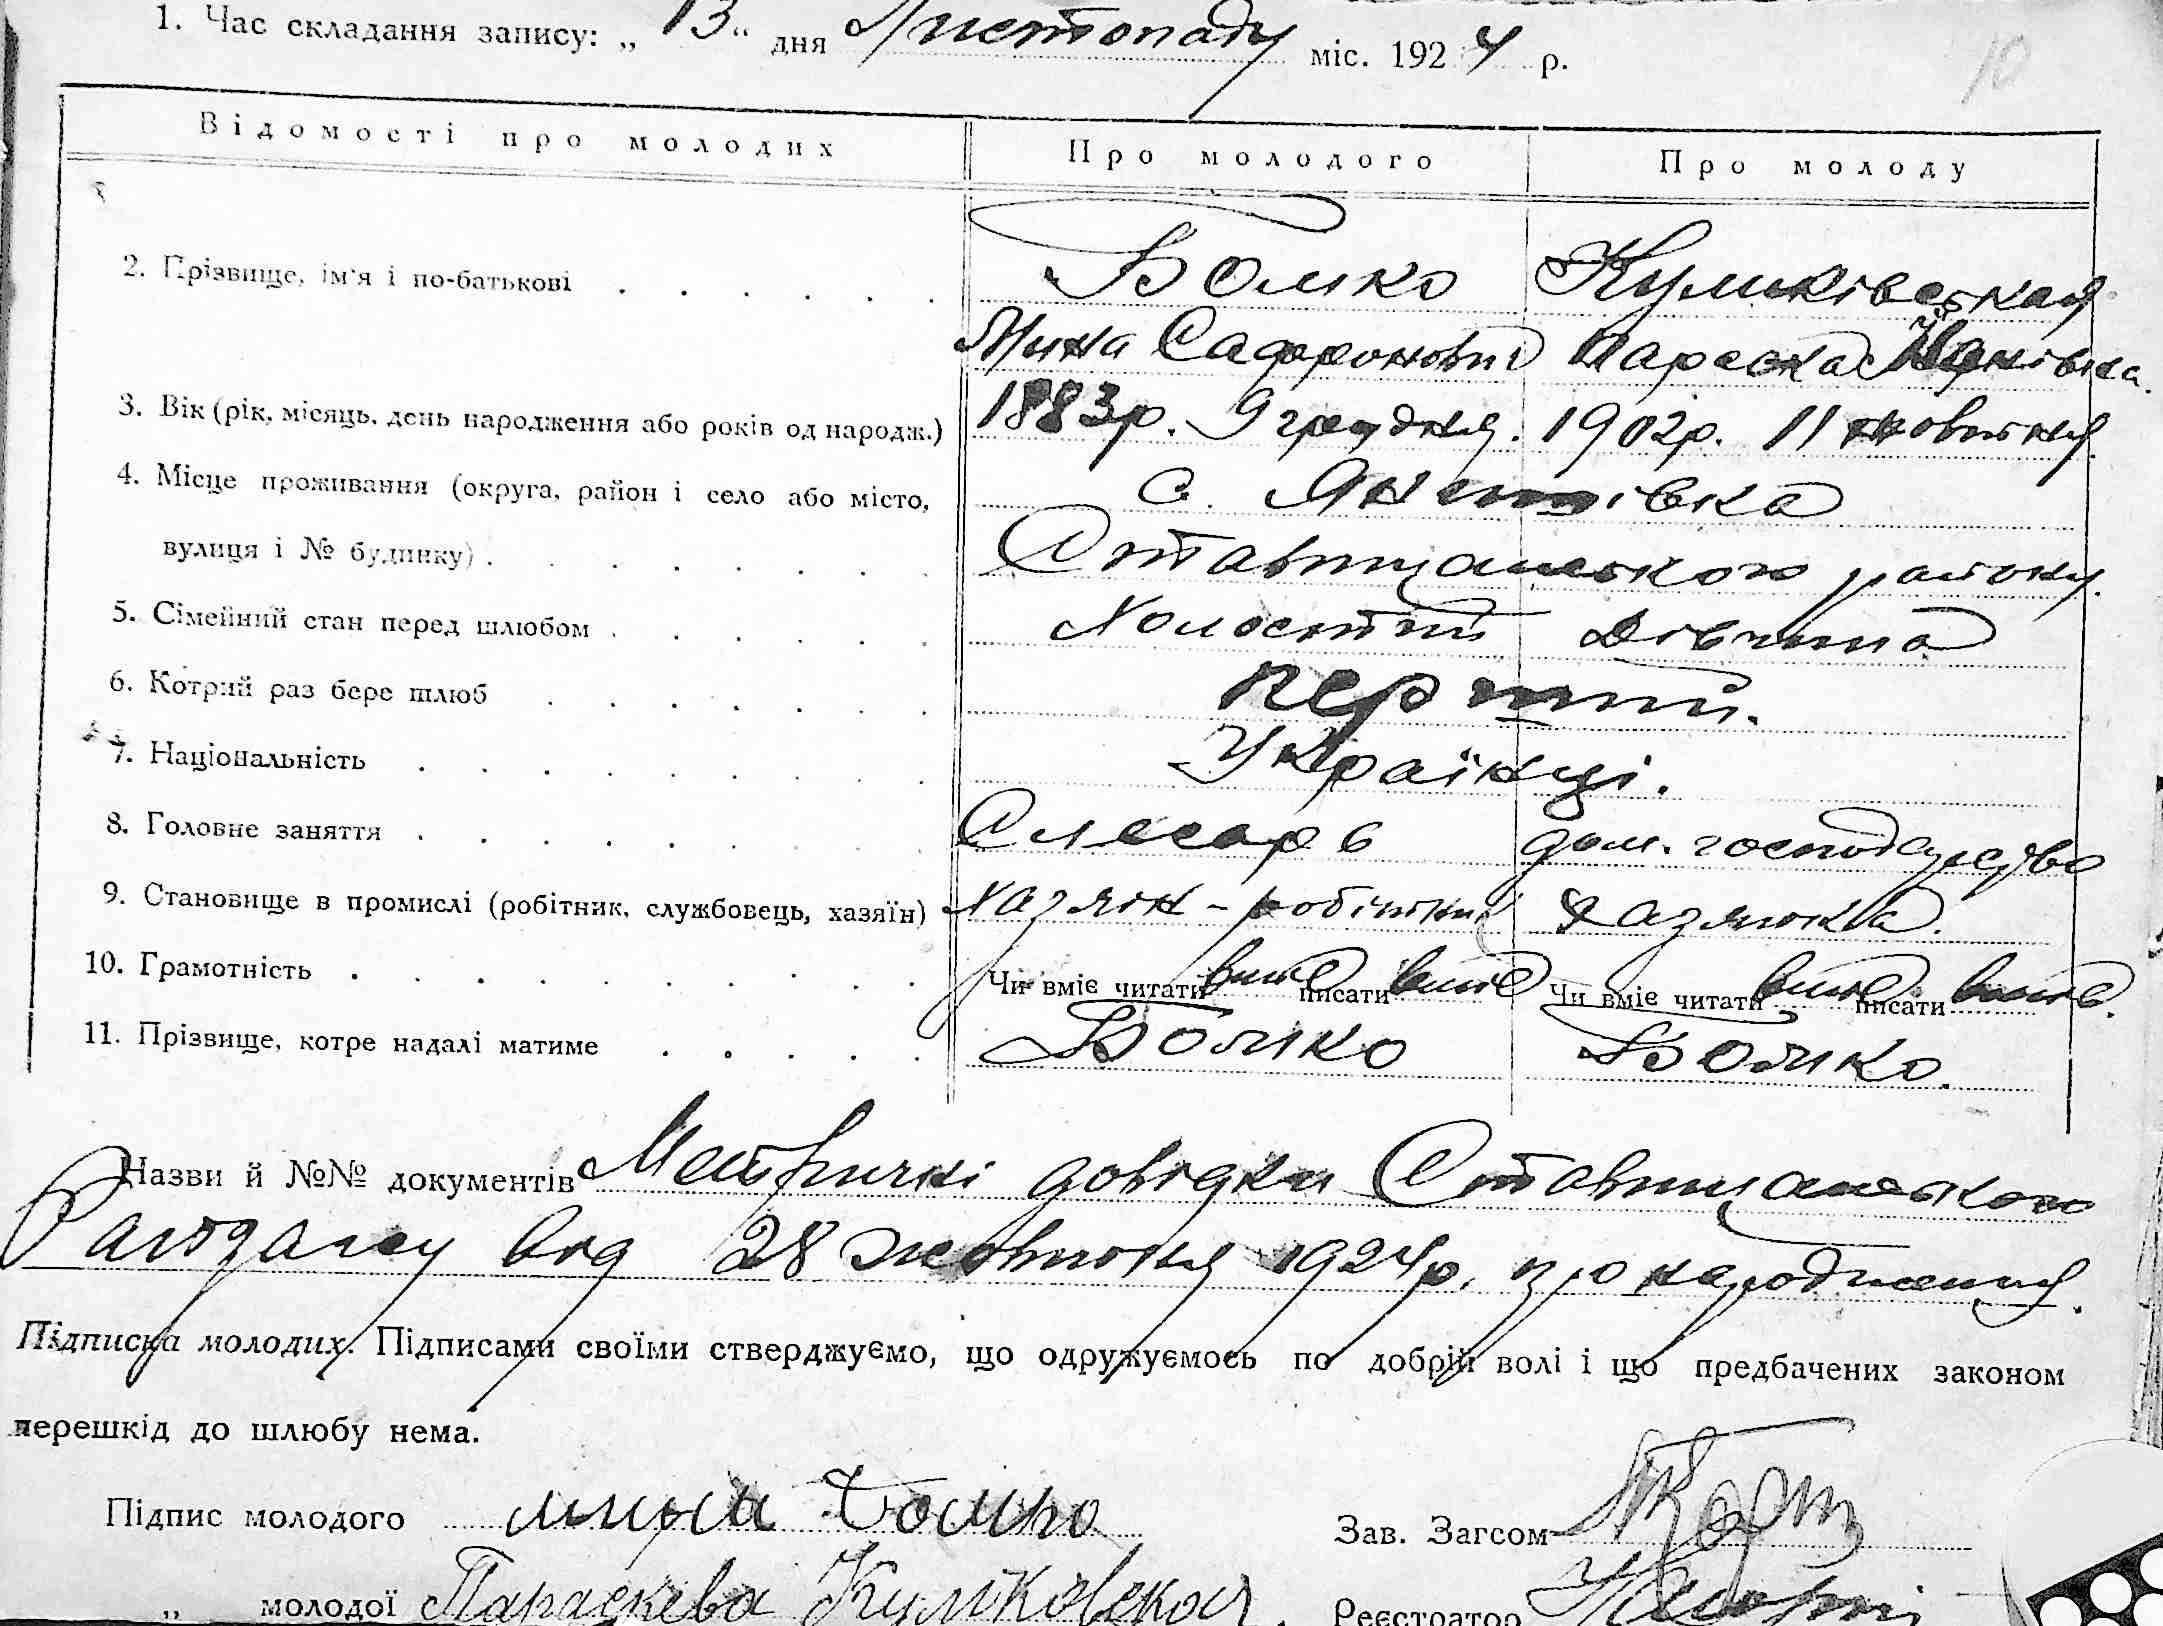 1. Час складання запису: „ 13 “ дня Листопаду міс. 1924 р.
10
Відомості про молодих Про молодого Про молоду
2. Прізвище, ім'я і по-батькові Бойко Куликівская
Мина Сафронович Параска
3. Вік (рік, місяць, день народження або років од народж.) 1883р. 9 грудня. 1902р. 11 жовтня.
4. Місце проживання (округа, район і село або місто, с. Янишівка
вулиця і № будинку) Ставищанського району.
5. Сімейний стан перед шлюбом Холостий Дівчина
6. Котрий раз бере шлюб перший.
7. Національність Українці.
8. Головне заняття Слесарь дом. господарство
9. Становище в промислі (робітник, службовець, хазяїн) хазяїн - робітник хазяйка.
10. Грамотність Чи вміє читати вміє писати вміє Чи вміє читати вміє писати вміє.
11. Прізвище, котре надалі матиме Бойко Бойко.
Назви й №№ документів Метричні довідки Ставищанського
Райзагсу від 28 жовтня 1924р. про народження.
Підписка молодих. Підписами своїми стверджуємо, що одружуємось по добрій волі і що предбачених законом
перешкід до шлюбу нема.
Підпис молодого мина Бойко Зав. Загсом
„ молодої Параскева Куликовская. Реєстратор